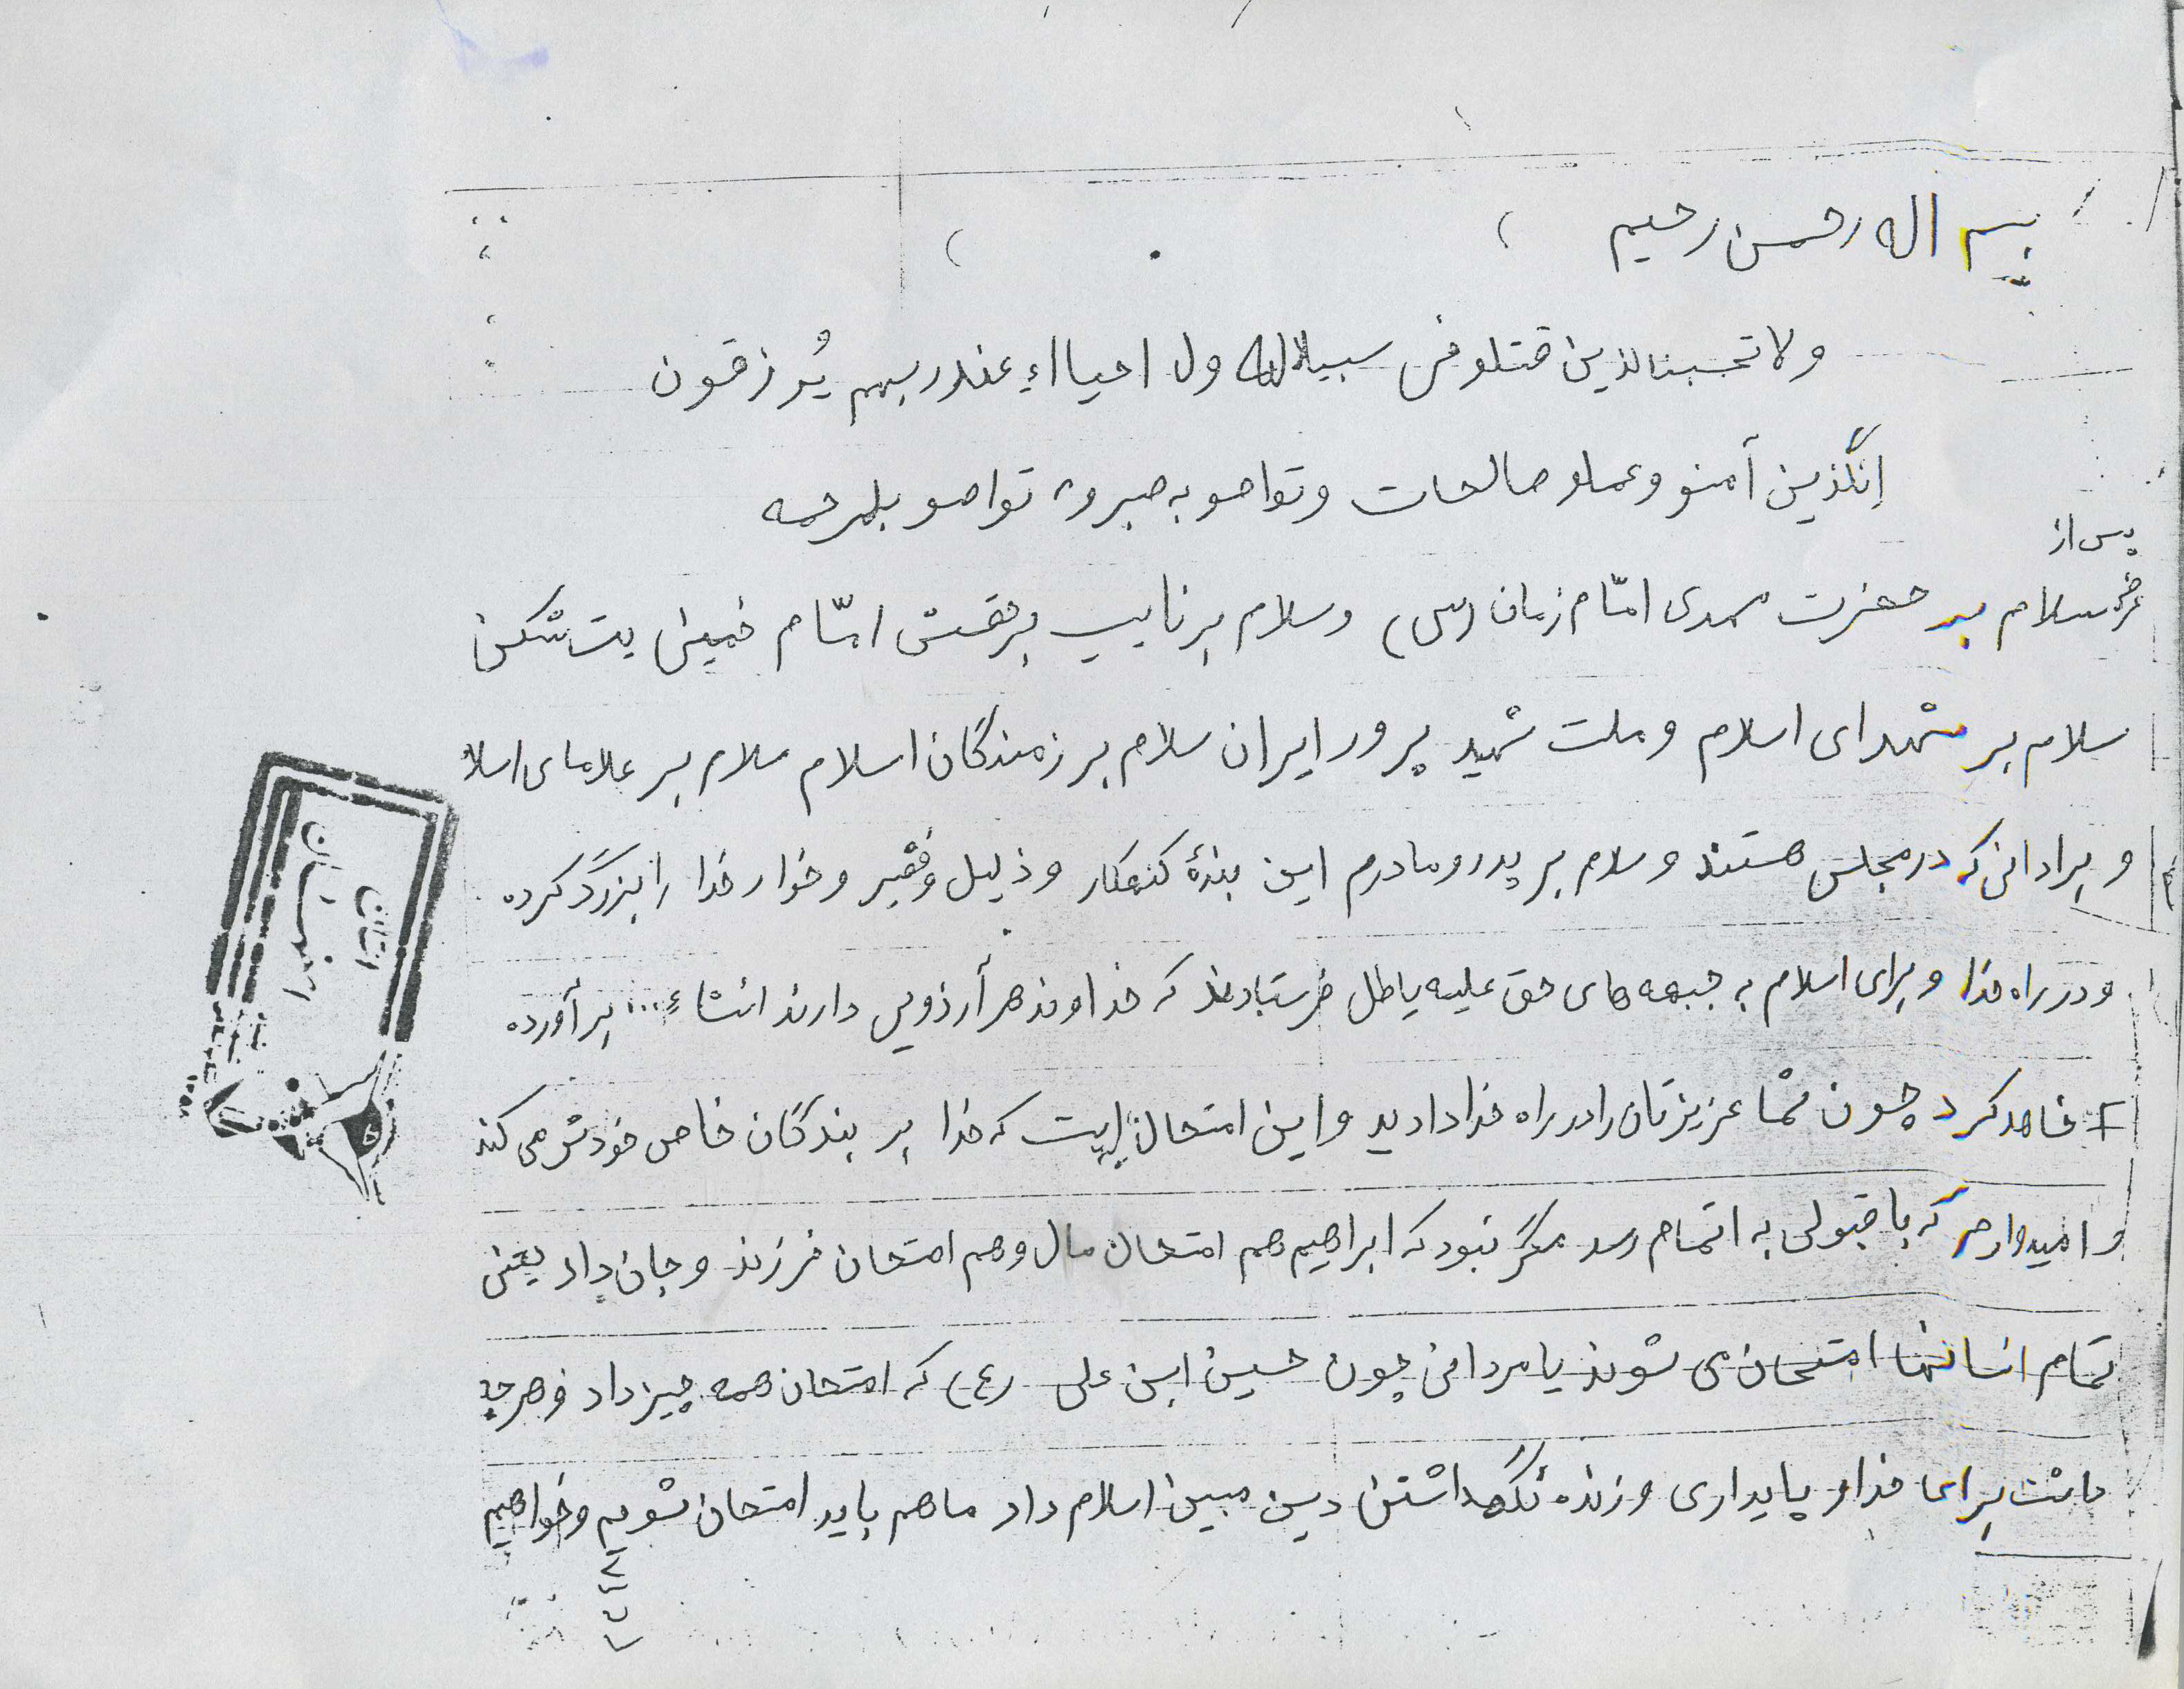 بسم اله رحمن رحیم
ولا تحسبنالذین قتلو فی سبیلالله ول احیااءٍ عندربهم یُرزقون
انّلذین آمنو وعملو صالحات وتواصو به صبر و تواصو بلمرحمه
پس از
عرض سلام بر حضرت مهدی امّام زمان (س) وسلام برنایب برحقش امّام خمینی بت شکن
سلام بر شهدای اسلام و ملت شهید پرور ایران سلام بر رزمندگان اسلام سلام بر علامای اسلا
و برادانی که در مجلس هستند و سلام بر پدرو مادرم این بندهٔ گنهکار و ذلیل و فقیر و خوار خدا را بزرگ کرده
و در راه خدا و برای اسلام به جبهه های حق علیه باطل فرستادند که خداوند هر آرزویی دارند انشاء... برآورده
خاهد کرد چون شما عزیزتان را در راه خدا دادید و این امتحان ایست که خدا بر بندگان خاص خودش می کند
و امیدوارم که با قبولی به اتمام رسد مگر نبود که ابراهیم هم امتحان مال و هم امتحان فرزند و جان داد یعنی
تمام انسانها امتحان می شوند یا مردانی چون حسین ابن علی (ع) که امتحان همه چیز داد و هر چه
داشت برای خدا و پایداری و زنده نگهداشتن دین مبین اسلام داد ما هم باید امتحان شویم و خواهیم
استان